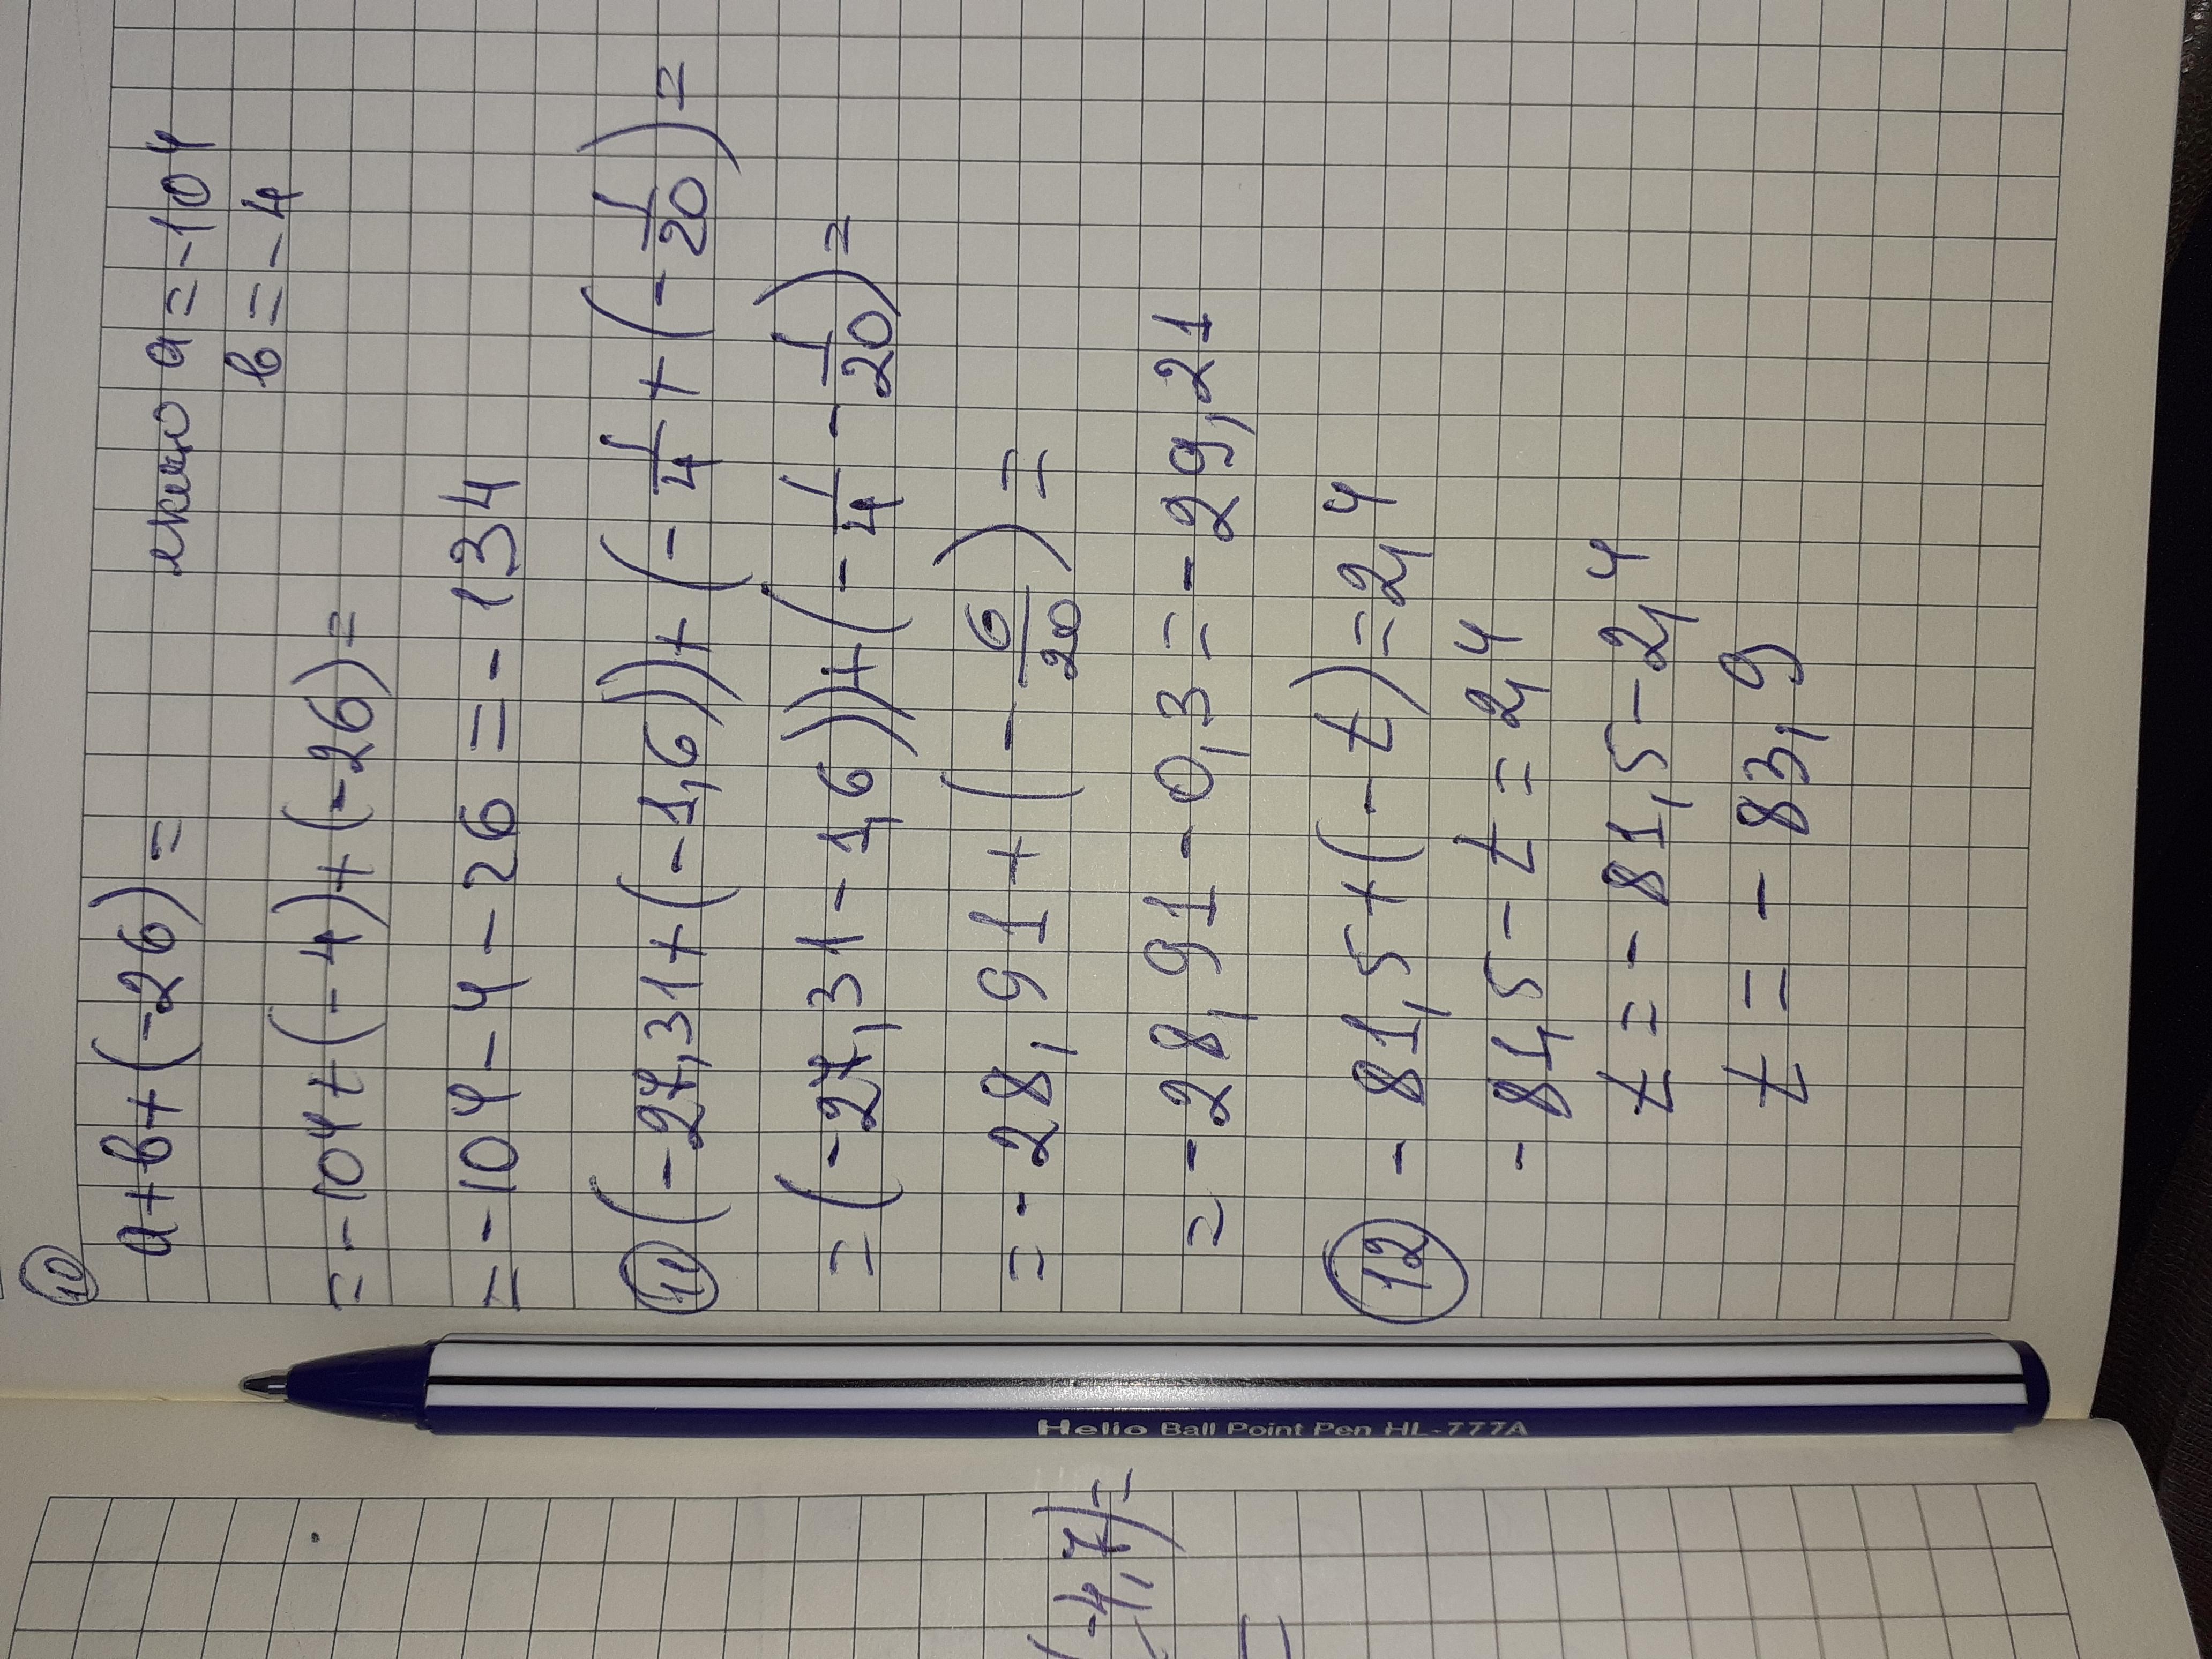 10
a+b+(-26)= якщо a=-104
b=-4
=-104+(-4)+(-26)=
=-104-4-26=-134
11 (-27,31+(-1,6))+(-1/4+(-1/20)=
=(-27,31-1,6))+(-1/4-1/20)=
=-28,91+(-6/20)=
=-28,91-0,3=-29,21
12 -81,5+(-t)=2,4
-81,5-t=2,4
t=-81,5-2,4
t=-83,9
Helio Ball Point Pen HL-777A
(-4,7)=
=